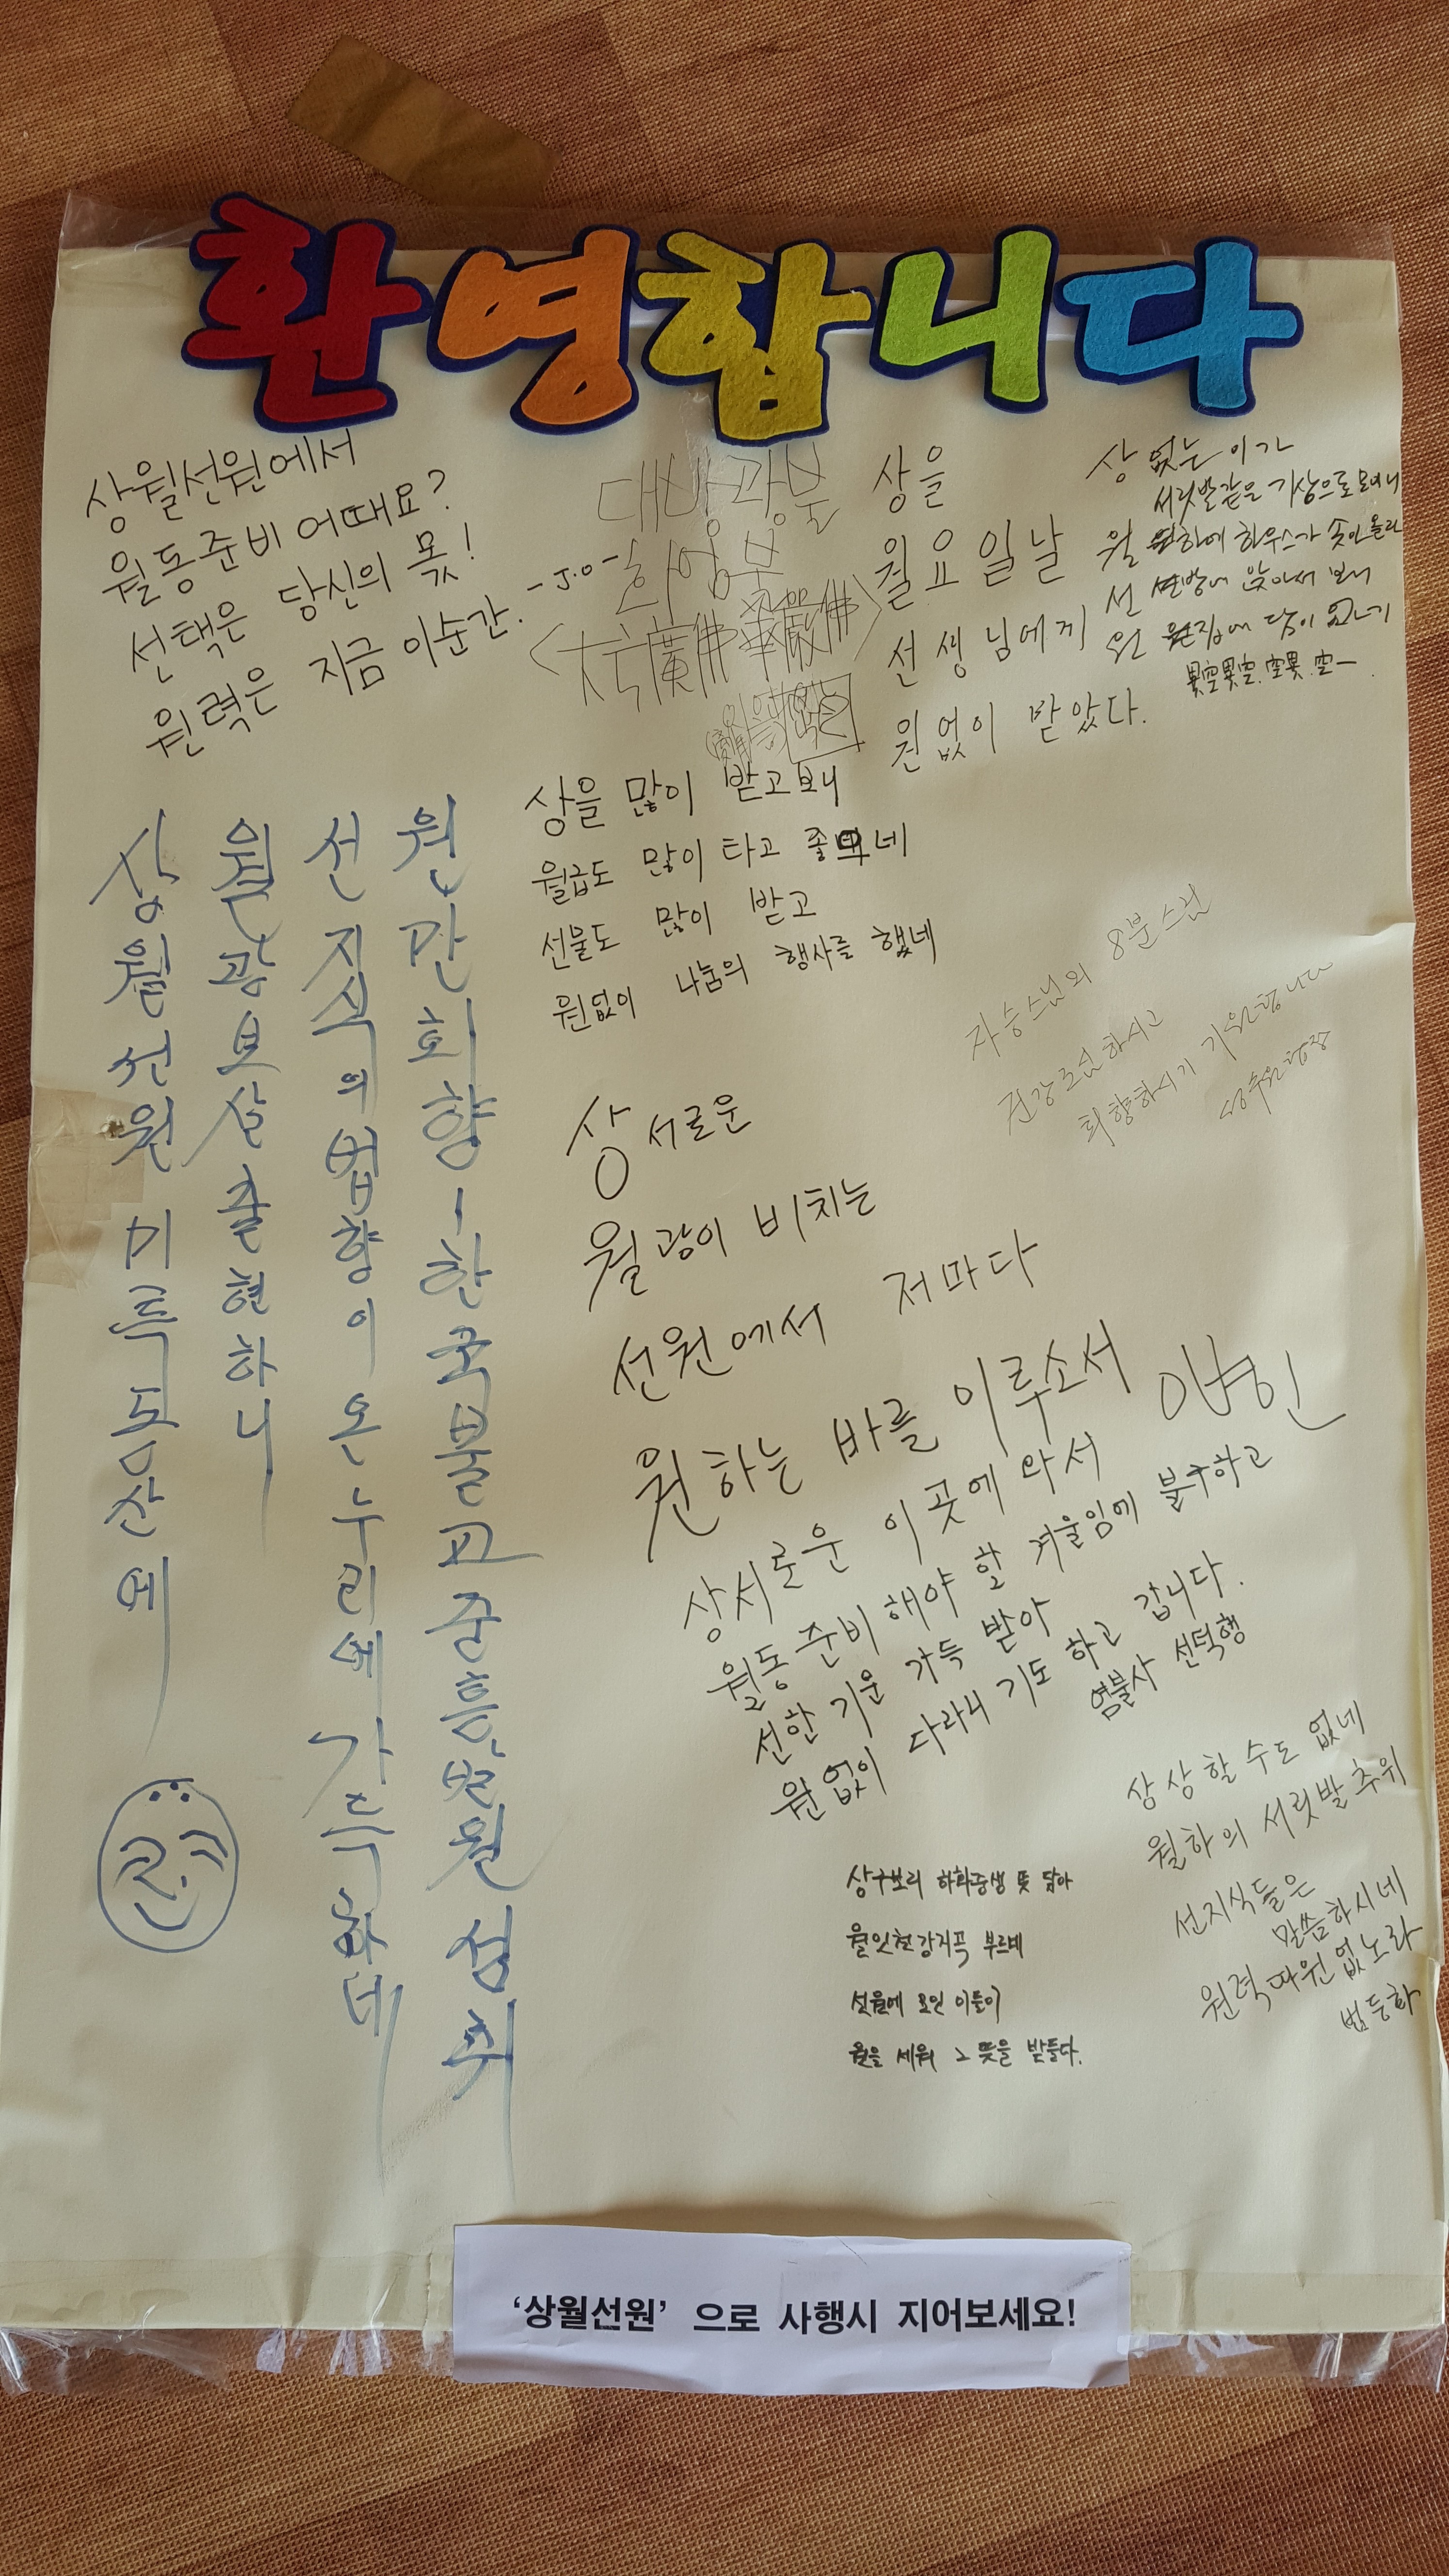 환영합니다
상월선원에서
월동준비 어때요?
선택은 당신의 몫!
원력은 지금 이순간.
-J.O-
대방광불
화엄불
<大方廣佛華嚴佛>
상을
월요일날
선생님에게
원없이 받았다.
상 없는 이가
서릿발같은 기상으로 모이니
월 월하에 하우스가 솟아올라
선 선방에 앉아서 보니
원
상을 많이 받고보니
월급도 많이 타고 좋네
선물도 많이 받고
원없이 나눔의 행사를 했네
자승스님외 8분스님
건강조심하시고
회향하시기 기원합니다
상월선원 미륵동산에
월광보살 출현하니
선지식의 법향이 온누리에 가득하네
원만회향-한국불교중흥, 발원 성취
상서로운
월광이 비치는
선원에서 저마다
원하는 바를 이루소서
상서로운 이곳에 와서
월동준비 해야 할 겨울임에 불구하고
선한 기운 가득 받아
원없이 다라니 기도 하고 갑니다.
염불사 선덕행
상상할 수도 없네
월하의 서릿발 추위
선지식들은
말씀하시네
원력따윈 없노라
법등화
상구보리 하화중생 뜻 담아
월인천강지곡 부르네
선원에 모인 이들이
원을 세워 그 뜻을 받들다.
'상월선원' 으로 사행시 지어보세요!